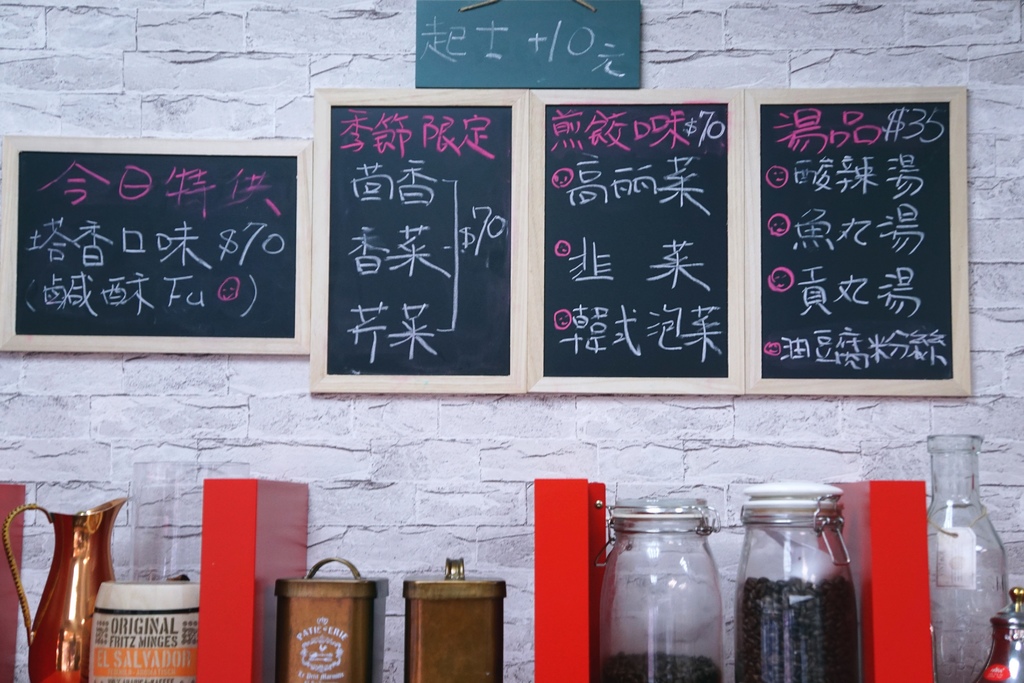 起士 +10元
今日特供
塔香口味 $70
(鹹酥 Fu )
季節限定
茴香
香菜
芹菜
$70
煎餃口味 $70
高丽菜
韭菜
韓式泡菜
湯品 $35
酸辣湯
魚丸湯
貢丸湯
油豆腐粉絲
ORIGINAL
FRITZ MINGES
EL SALVADOR